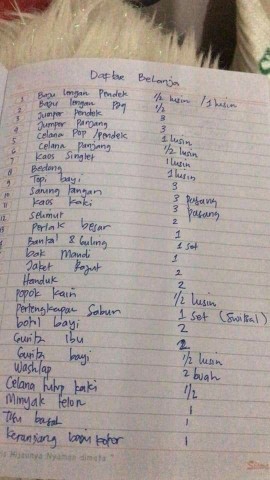 Daftar Belanja
1 Baju lengan Pendek 1/2 lusin / 1 lusin
2 Baju lengan Pjg 1/2
3 Jumper pendek 3
4 Jumper panjang 3
5 Celana Pop / pendek 1 lusin
6 Celana panjang 1/2 lusin
7 Kaos Singlet 1 lusin
8 Bedong 1 lusin
9 Topi bayi 3
10 Sarung tangan 3 pasang
11 Kaos kaki 3 pasang
12 Selimut 2
Perlak besar 1
Bantal & Guling 1 set
bak Mandi 1
Jaket Rajut 2
Handuk 2
Popok kain 1/2 lusin
Perlengkapan Sabun 1 set (Switsal)
botol bayi 2
Gurita Ibu 2
Gurita bayi 1/2 lusin
Washlap 2 buah
Celana tutup kaki 1/2
Minyak telon 1
Tisu basah 1
Keranjang kotor 1